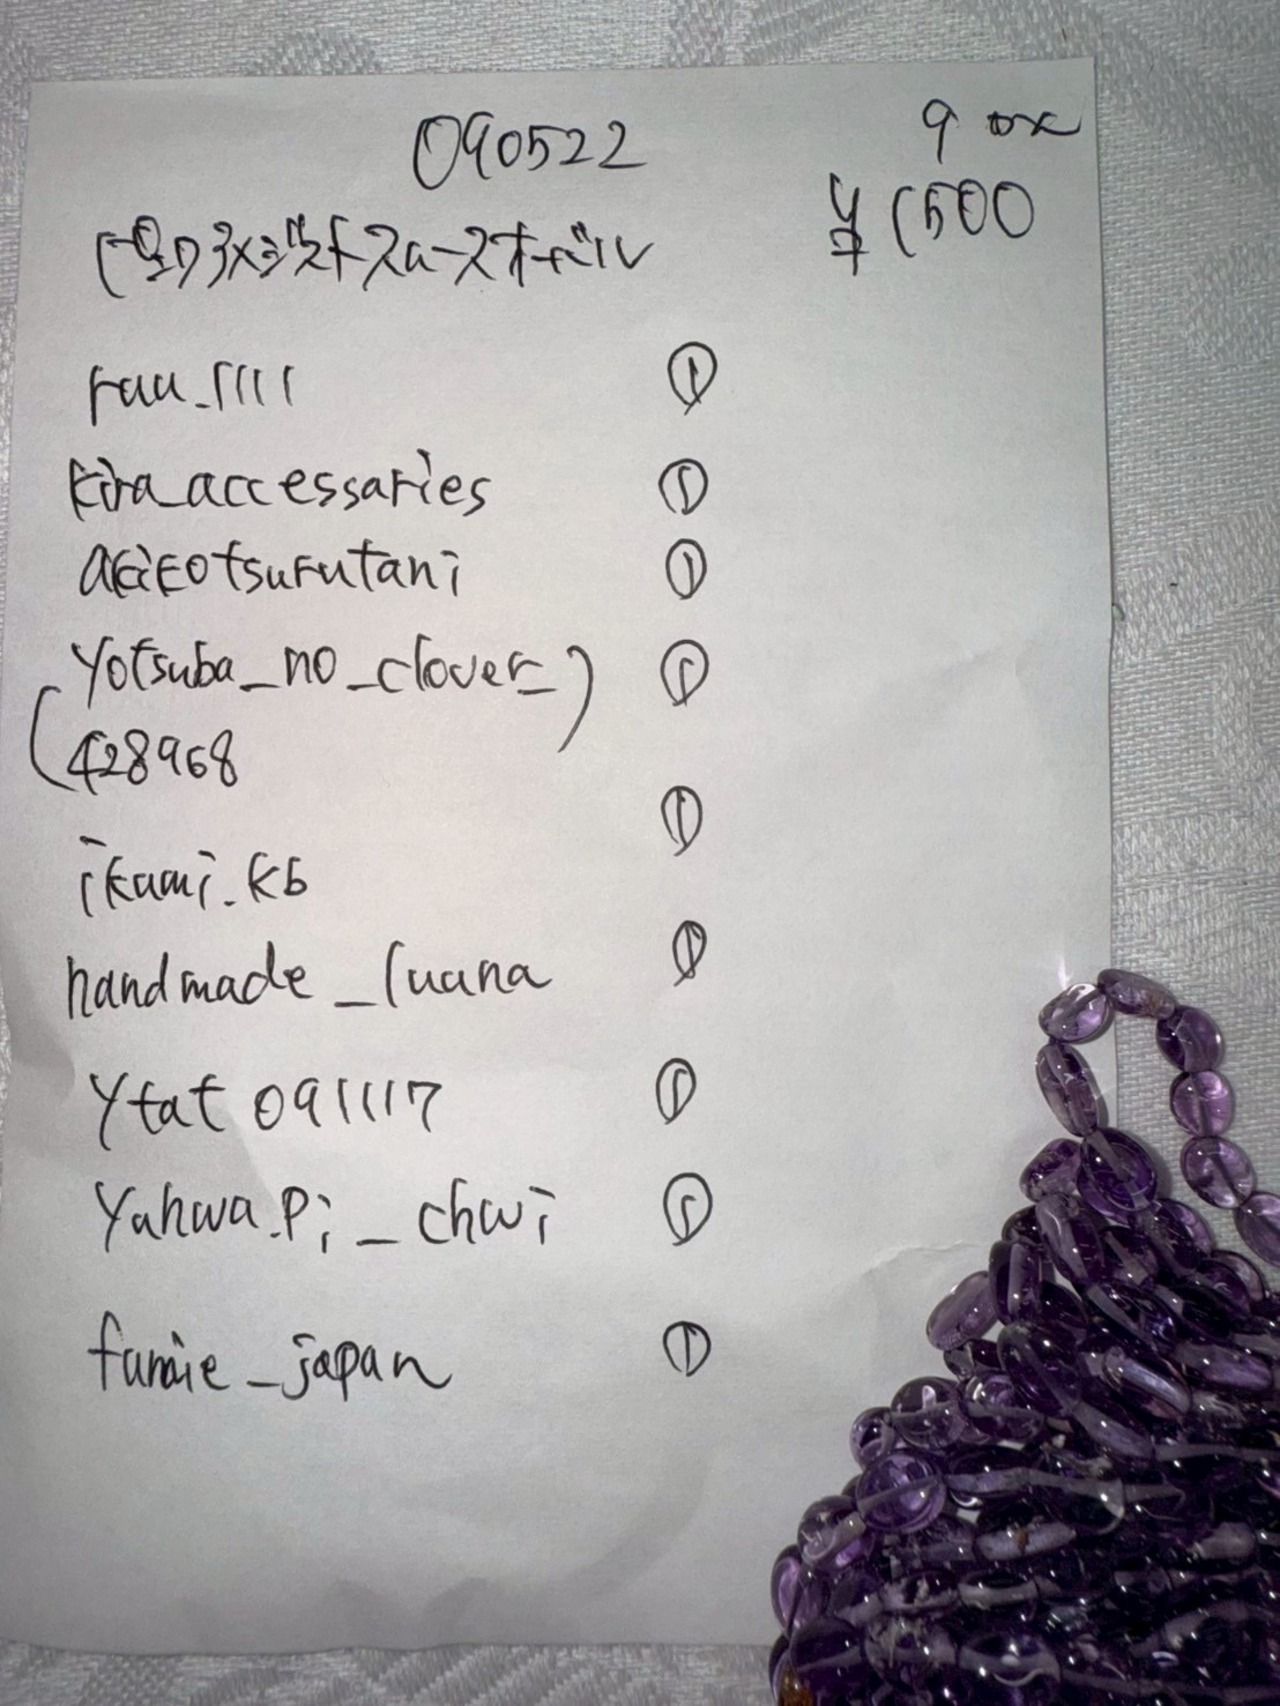 090522
9 ox
¥1500
アメジストスムースオーバル
ruu_1111
kira_accessaries
akikotsurutani
(yotsuba_no_clover_)
428968
ikumi.kb
handmade_luana
ytat091117
yahwa.pi_chwi
fumie_japan
①
①
①
①
①
①
①
①
①